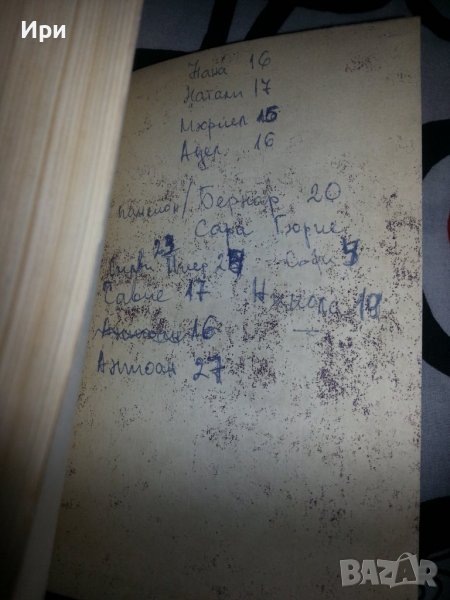 Ири
Нана 16
Натали 17
Мюриел 15
Адел 16
пансион/Бернар 20
Сара Гюрие
23
Силви Пиер 28 Софи 7
Савие 17 Никола 19
16
Антоан 27
BAZAR
.bg